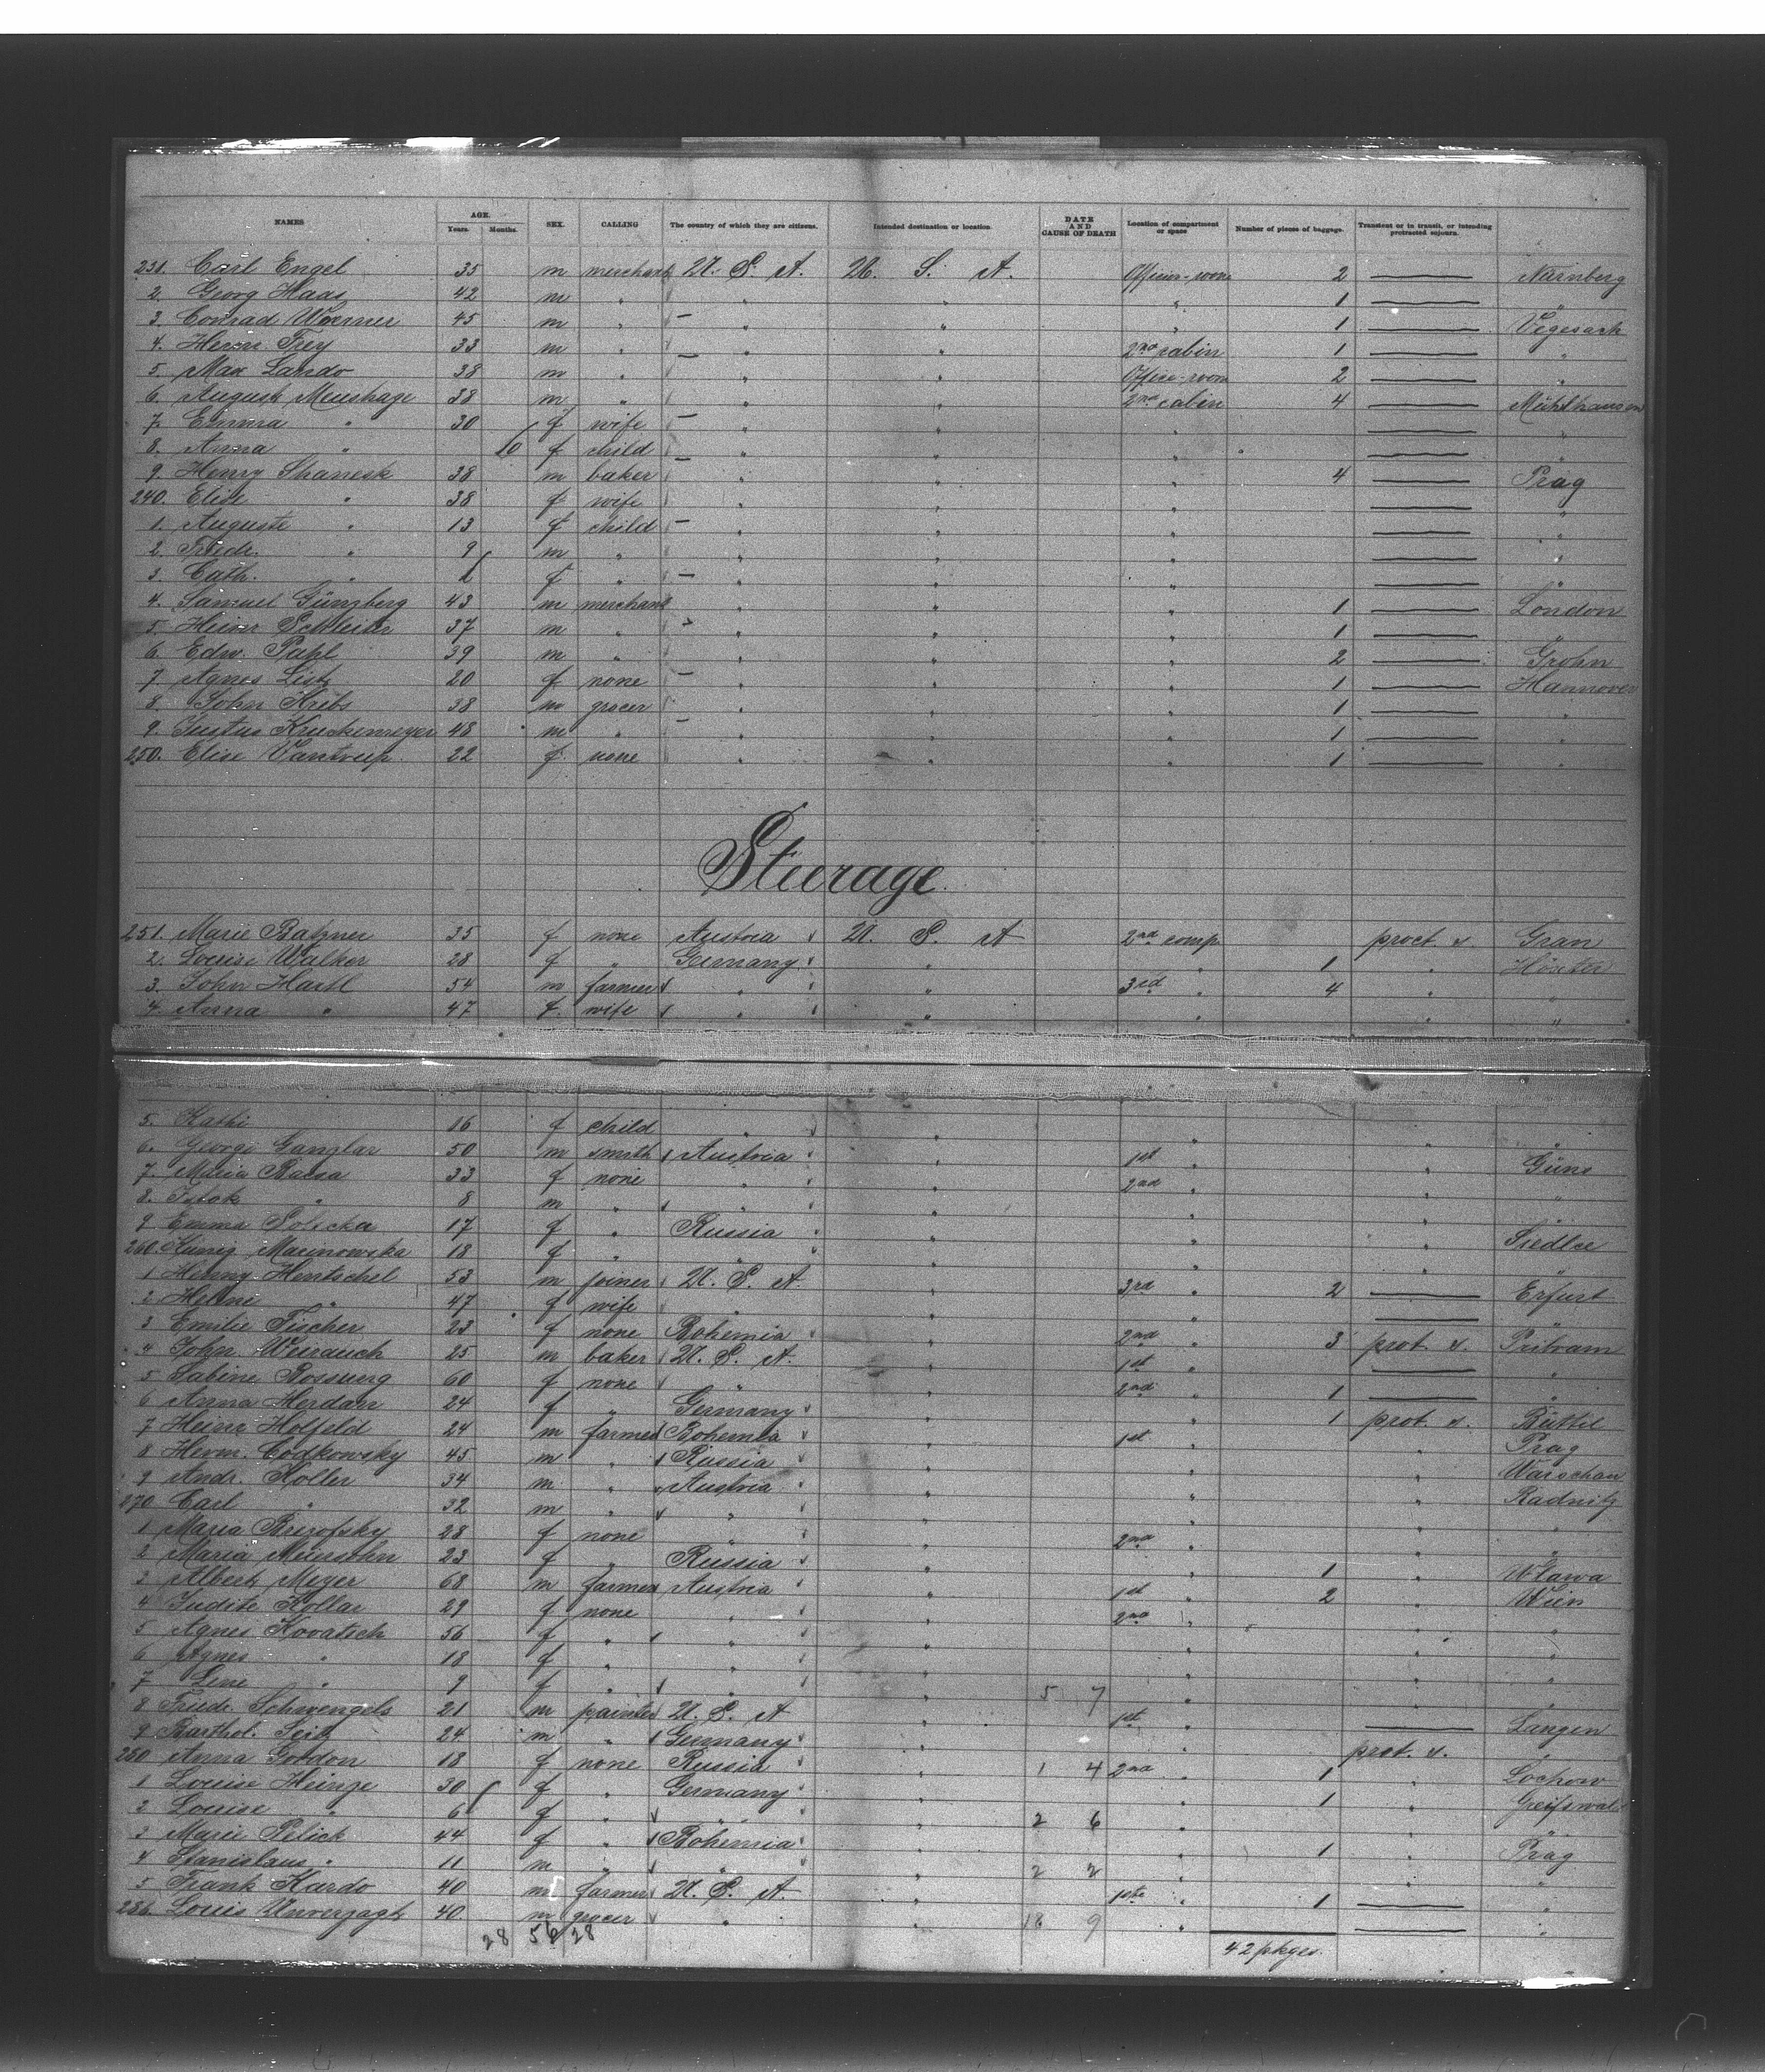 NAMES AGE. Years. Months. SEX. CALLING The country of which they are citizens. Intended destination or location DATE AND CAUSE OF DEATH Location of compartment or space Number of pieces of baggage. Transient or in transit, or intending protracted sojourn.
231. Carl Engel 35 m merchant U. S. A. U. S. A. 2 Nürnberg
2. Georg Haas 42 m " " " " 1 "
3. Conrad Woerner 45 m " " " " 1 Vegesack
4. Herm. Frey 33 m " " " 2nd cabin 1 "
5. Max Lando 38 m " " " Office-room 2 "
6. August Meushage 38 m " " " 2nd cabin 4 Mühlhausen
7. Emma " 30 f wife " " " "
8. Anna " 10 f child " " " "
9. Henry Shanesk 38 m baker " " " 4 Prag
240. Elise " 38 f wife " " " "
1. Auguste " 13 f child " " " "
2. Friedr. " 9 m " " " " "
3. Cath. " f " " " " "
4. Samuel Günzberg 43 m merchant " " " 1 London
5. Heinr. 37 m " " " " 1 "
6. Edw. Pahl 39 m " " " " 2 Grohn
7. Agnes List 20 f none " " " 1 Hannover
8. John Krebs 38 m grocer " " " 1 "
9. Justus Kruckemeyer 48 m " " " " 1 "
250. Elise Vantrup 22 f none " " " 1 "
Steerage
251. Marie Batzner 35 f none Austria U. S. A 2nd comp. proct. s. Gran
2. Louise Walker 28 f " Germany " " 1 " Höxter
3. John Hartl 54 m farmer " " 3rd " 4 " "
4. Anna " 47 f. wife " " " " "
5. Kathi 16 f child " " " " "
6. George Ganglar 50 m smith Austria " 1st " " Güns
7. Maria Bacsa 33 f none " " 2nd " " "
8. " 8 m " " " " " "
9 Emma Solicka 17 f " Russia " " " Siedlce
260. Marinowska 18 f " " " " " "
1 Henry Hentschel 53 m joiner U. S. A. " 3rd " 2 Erfurt
2 Helene " 47 f wife " " " "
3 Emilie Fischer 23 f none Bohemia " 2nd " 3 prot. s. Pribram
4 John Weirauch 25 m baker U. S. A. " 1st " "
5 Sabine Rossung 60 f none " " 2nd " 1 "
6 Anna Herdan 24 f " Germany " " 1 prot. s. Büttel
7 Heinr. Holfeld 24 m farmer Bohemia " 1st " " Prag
8 Herm. Codkowsky 45 m " Russia " " " Warschau
9 Andr. Koller 34 m " Austria " " " Radnitz
270 Carl " 32 m " " " " " "
1 Maria Brezofsky 28 f none " " 2nd " " "
2 Maria Meiersohn 23 f " Russia " " 1 " Mlawa
3 Albert Meyer 68 m farmer Austria " 1st " 2 " Wien
4 Judite Kollar 29 f none " " 2nd " " "
5 Agnes Kovatsch 56 f " " " " " "
6 Agnes " 18 f " " " " " "
7 Lene " 9 f " " " 5 7 " " "
8 Friedr. Schwengels 21 m painter U. S. A " 1st " Langen
9 Barthol. Seitz 24 m " Germany " " prot. s. "
280 Anna Gordon 18 f none Russia " 1 4 2nd " 1 " Lochow
1 Louise Heinze 30 f " Germany " " 1 " Greifswald
2 Louise " 6 f " " " 2 6 " " "
3 Marie Pelick 44 f " Bohemia " " 1 " Prag
4 Stanislaus " 11 m " " " 2 2 " " "
5 Frank Kardo 40 m farmer U. S. A. " 1st " 1 "
286. Louis Unverzagt 40 m grocer " " 18 9 " "
28 56 28 42 pkges.